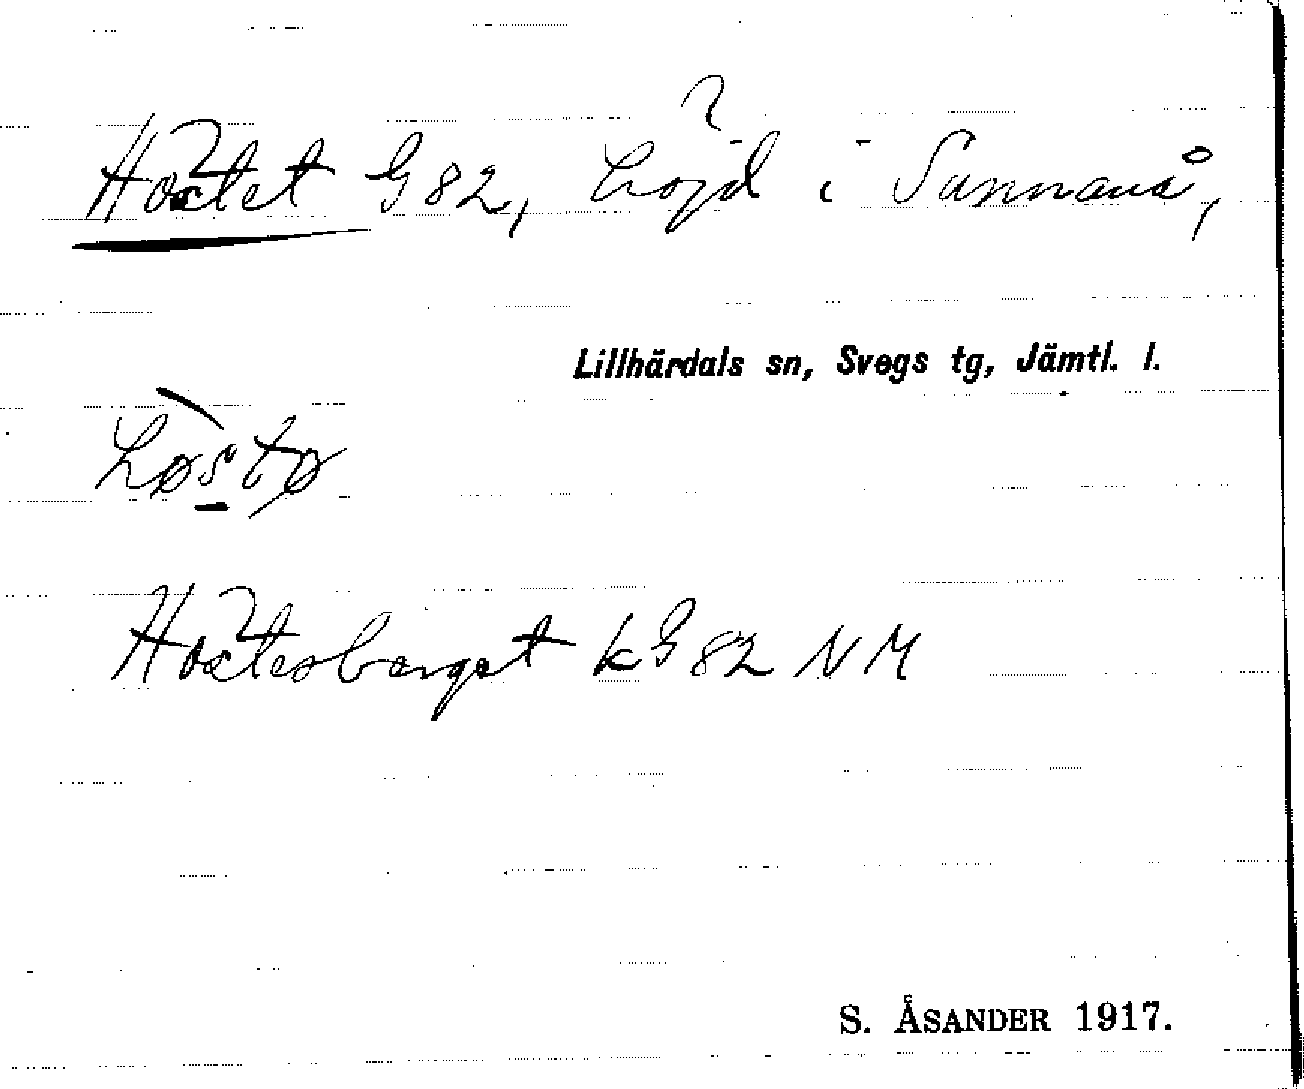 Hoctet G 82, höjd i Sunnanå,
Lillhärdals sn, Svegs tg, Jämtl. l.
Høstø
Hoctesberget k G 82 NM
S. ÅSANDER 1917.